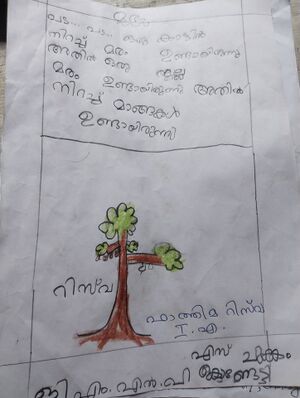 മരം
പണ്ട്... പണ്ട്... ഒരു കാട്ടിൽ
നിറച്ച് മരം ഉണ്ടായിരുന്നു
അതിൽ ഒരു നല്ല
മരം ഉണ്ടായിരുന്നു അതിൽ
നിറച്ച് മാങ്ങകൾ
ഉണ്ടായിരുന്നു
റിസ്‌വ
ഫാത്തിമ റിസ്‌വ
I. എ.
എസ്
ജി എം. എൽ. പി